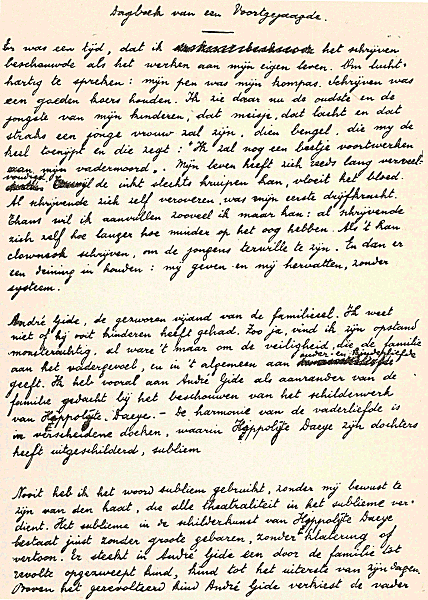 Dagboek van een Voortgejaagde.
Er was een tijd, dat ik het schrijven
beschouwde als het werken aan mijn eigen leven. Om lucht-
hartig te spreken: mijn pen was mijn kompas. Schrijven was
een goeden koers houden. Ik zie daar nu de oudste en de
jongste van mijn kinderen, dat meisje, dat lacht en dat
straks een jonge vrouw zal zijn, dien bengel, die my de
keel toenijpt en die zegt: "Ik zal nog een beetje voortwerken
aan mijn vadermoord". Mijn leven heeft zich reeds lang verveel-
voudigd. Terwijl de inkt slechts kruipen kan, vloeit het bloed.
Al schrijvende zich zelf veroveren, was mijn eerste drijfkracht.
Thans wil ik aanvullen zooveel ik maar kan: al schrijvende
zich zelf hoe langer hoe minder op het oog hebben. Als 't kan
clownesk schrijven, om de jongens terwille te zijn. En dan er
een deining in houden: mij geven en mij hervatten, zonder
systeem.
André Gide, de gezworen vijand van de familiecel. Ik weet
niet of hij ooit kinderen heeft gehad. Zoo ja, vind ik zijn opstand
monsterachtig, al ware 't maar om de veiligheid, die de familie
aan het vadergevoel, en in 't algemeen aan ouder- en kinderliefde
geeft. Ik heb vooral aan André Gide als aanrander van de
familie gedacht bij het beschouwen van het schilderwerk
van Hippolyte Daeye. - De harmonie van de vaderliefde is
in verscheidene doeken, waarin Hippolyte Daeye zijn dochters
heeft uitgeschilderd, subliem
Nooit heb ik het woord subliem gebruikt, zonder mij bewust te
zijn van den haat, die alle theatraliteit in het sublieme ver-
dient. Het sublieme in de schilderkunst van Hippolyte Daeye
bestaat juist zonder groote gebaren, zonder klatering of
vertoon. Er steekt in André Gide een door de familie tot
revolte opgezweept kind, kind tot het uiterste van zijn dagen.
Boven het gerevolteerd kind André Gide verkiest de vader